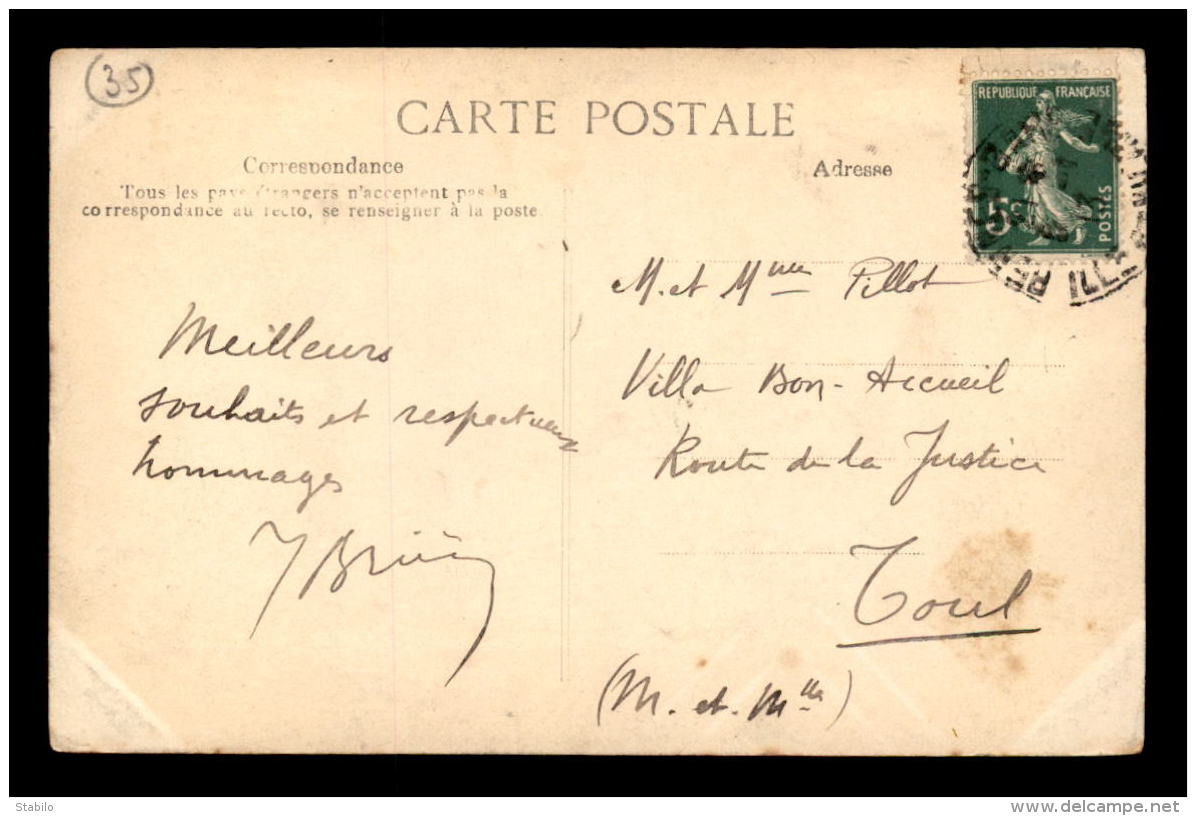 35
CARTE POSTALE
REPUBLIQUE FRANÇAISE
5c
POSTES
Correspondance
Tous les pays étrangers n'acceptent pas la
correspondance au recto, se renseigner à la poste.
Adresse
Meilleurs
souhaits et respectueux
hommages
M. et Mme Pillot
Villa Bon-Accueil
Route de la Justice
Toul
(M. et. Mlle)
Stabilo
delcampe.net